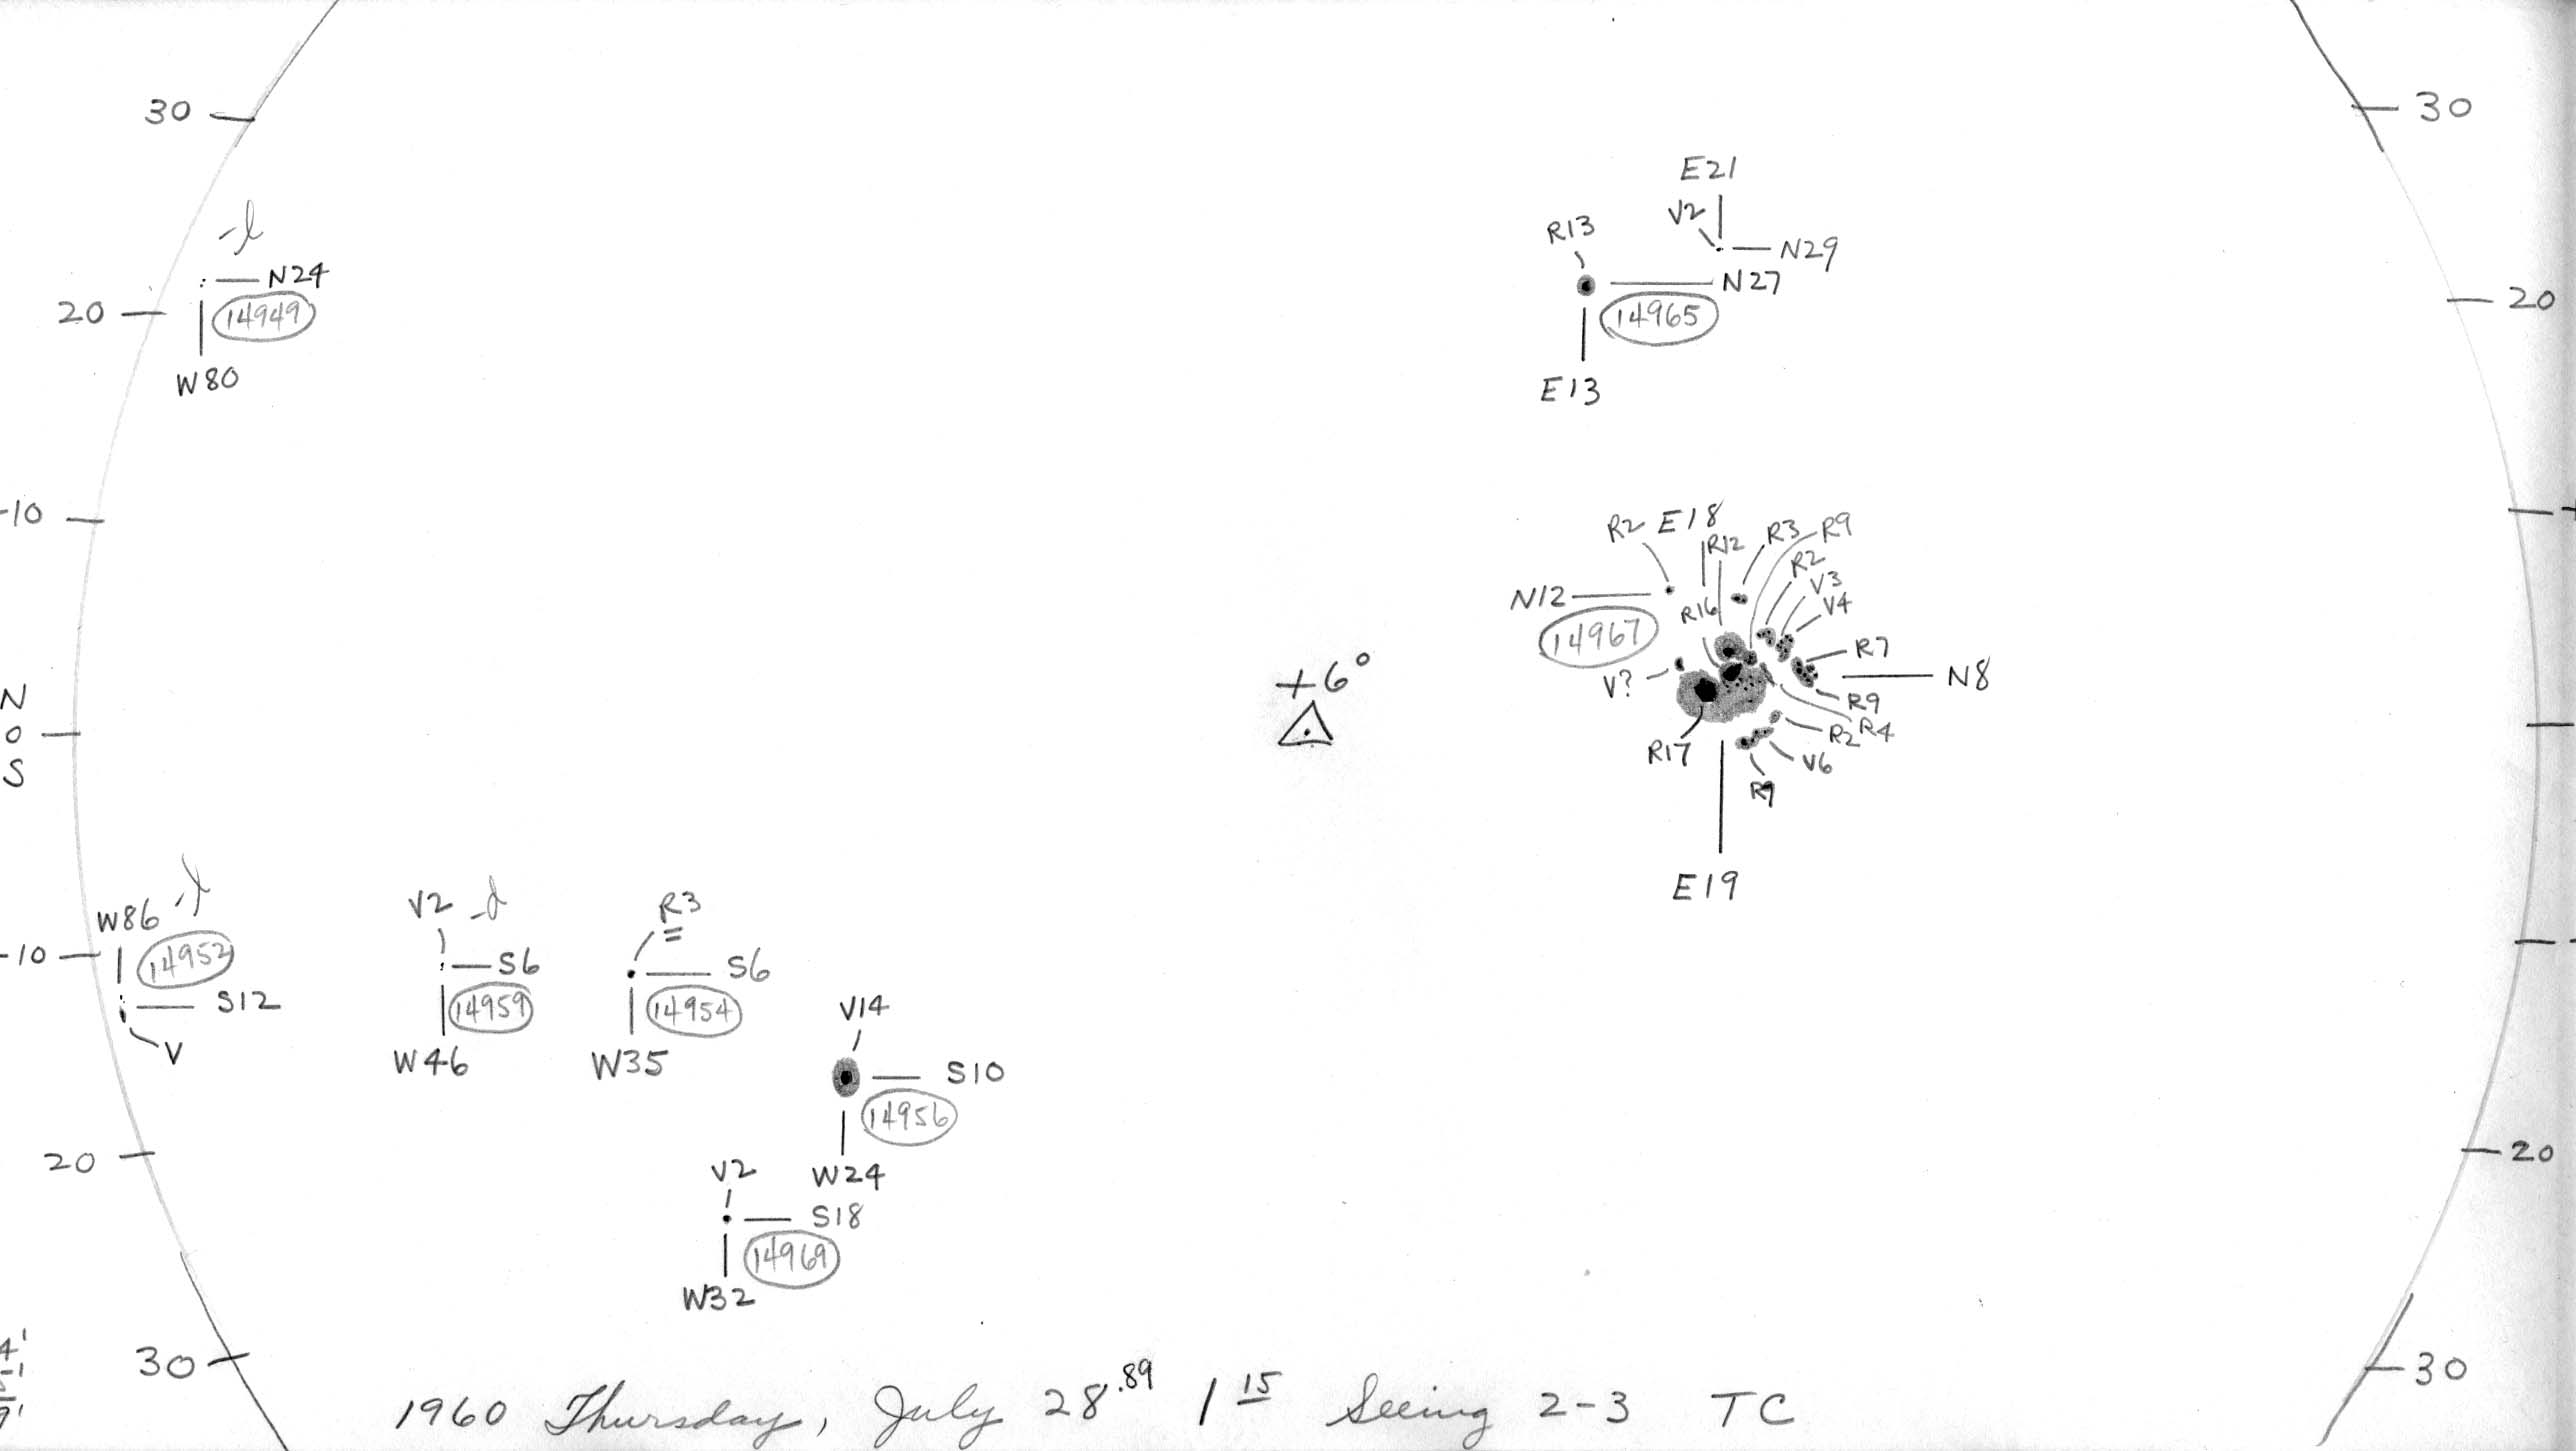 30
30
E21
V2
R13
N29
N24
N27
20
14949
14965
20
W80
E13
-10
R2 E18
R12
R3
R9
R2
V3
V4
N12
R16
14967
R7
N8
V?
R9
R4
R2
R17
V6
+6°
N
0
S
E19
W86
V2
R3
-10
14952
S6
S6
S12
14959
14954
V
W46
W35
V14
S10
14956
20
20
V2
W24
S18
14969
W32
30
30
1960 Thursday, July 28.89 1 15 Seeing 2-3 TC